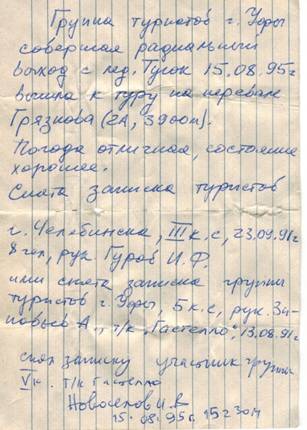 Группа туристов г. Уфы
совершая радиальный
выход с лед. Тугюк 15.08.95г
вышла к туру на перевале
Грязнова (2А, 3900м).
Погода отличная, состояние
хорошее.
Снята записка туристов
г. Челябинска, III к.с, 23.09.91г
8 чел, рук. Гуров И.Ф.
ими снята записка группы
туристов г. Уфы, 5 к.с, рук. Зи-
новьев А., т/к "Гастелло", 13.08.91г
снял записку участник группы
V к. т/к Гастелло
Новоселов И.В
15.08.95г. 15ч 30м